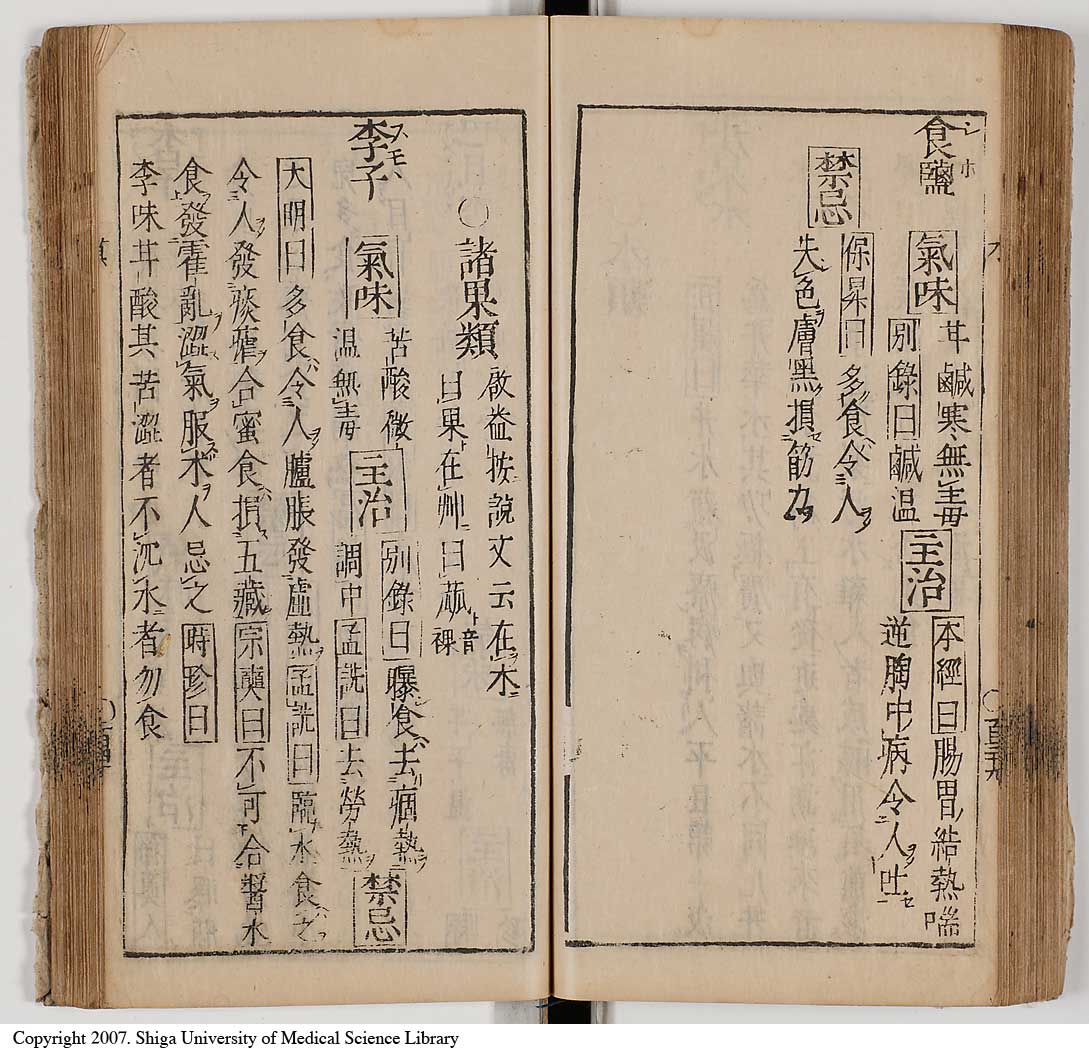 食鹽 シホ
氣味 甘鹹寒無毒
別錄曰鹹温
主治 本經曰腸胃結熱喘
逆胸中病令人吐
禁忌 保昇曰多食令人
失色膚黑損筋力
〇諸果類 啟益按說文云在木
曰果在艸曰蓏音裸
李子 スモヽ
氣味 苦酸微
温無毒
主治 別錄曰曝食去痼熱
調中孟詵曰去勞熱
禁忌
大明曰多食令人臚脹發虛熱孟詵曰臨水食之
令人發痰瘧合蜜食損五藏宗奭曰不可合醬水
食發霍亂澀氣服朮人忌之時珍曰
李味甘酸其苦澀者不沉水者勿食
Copyright 2007. Shiga University of Medical Science Library